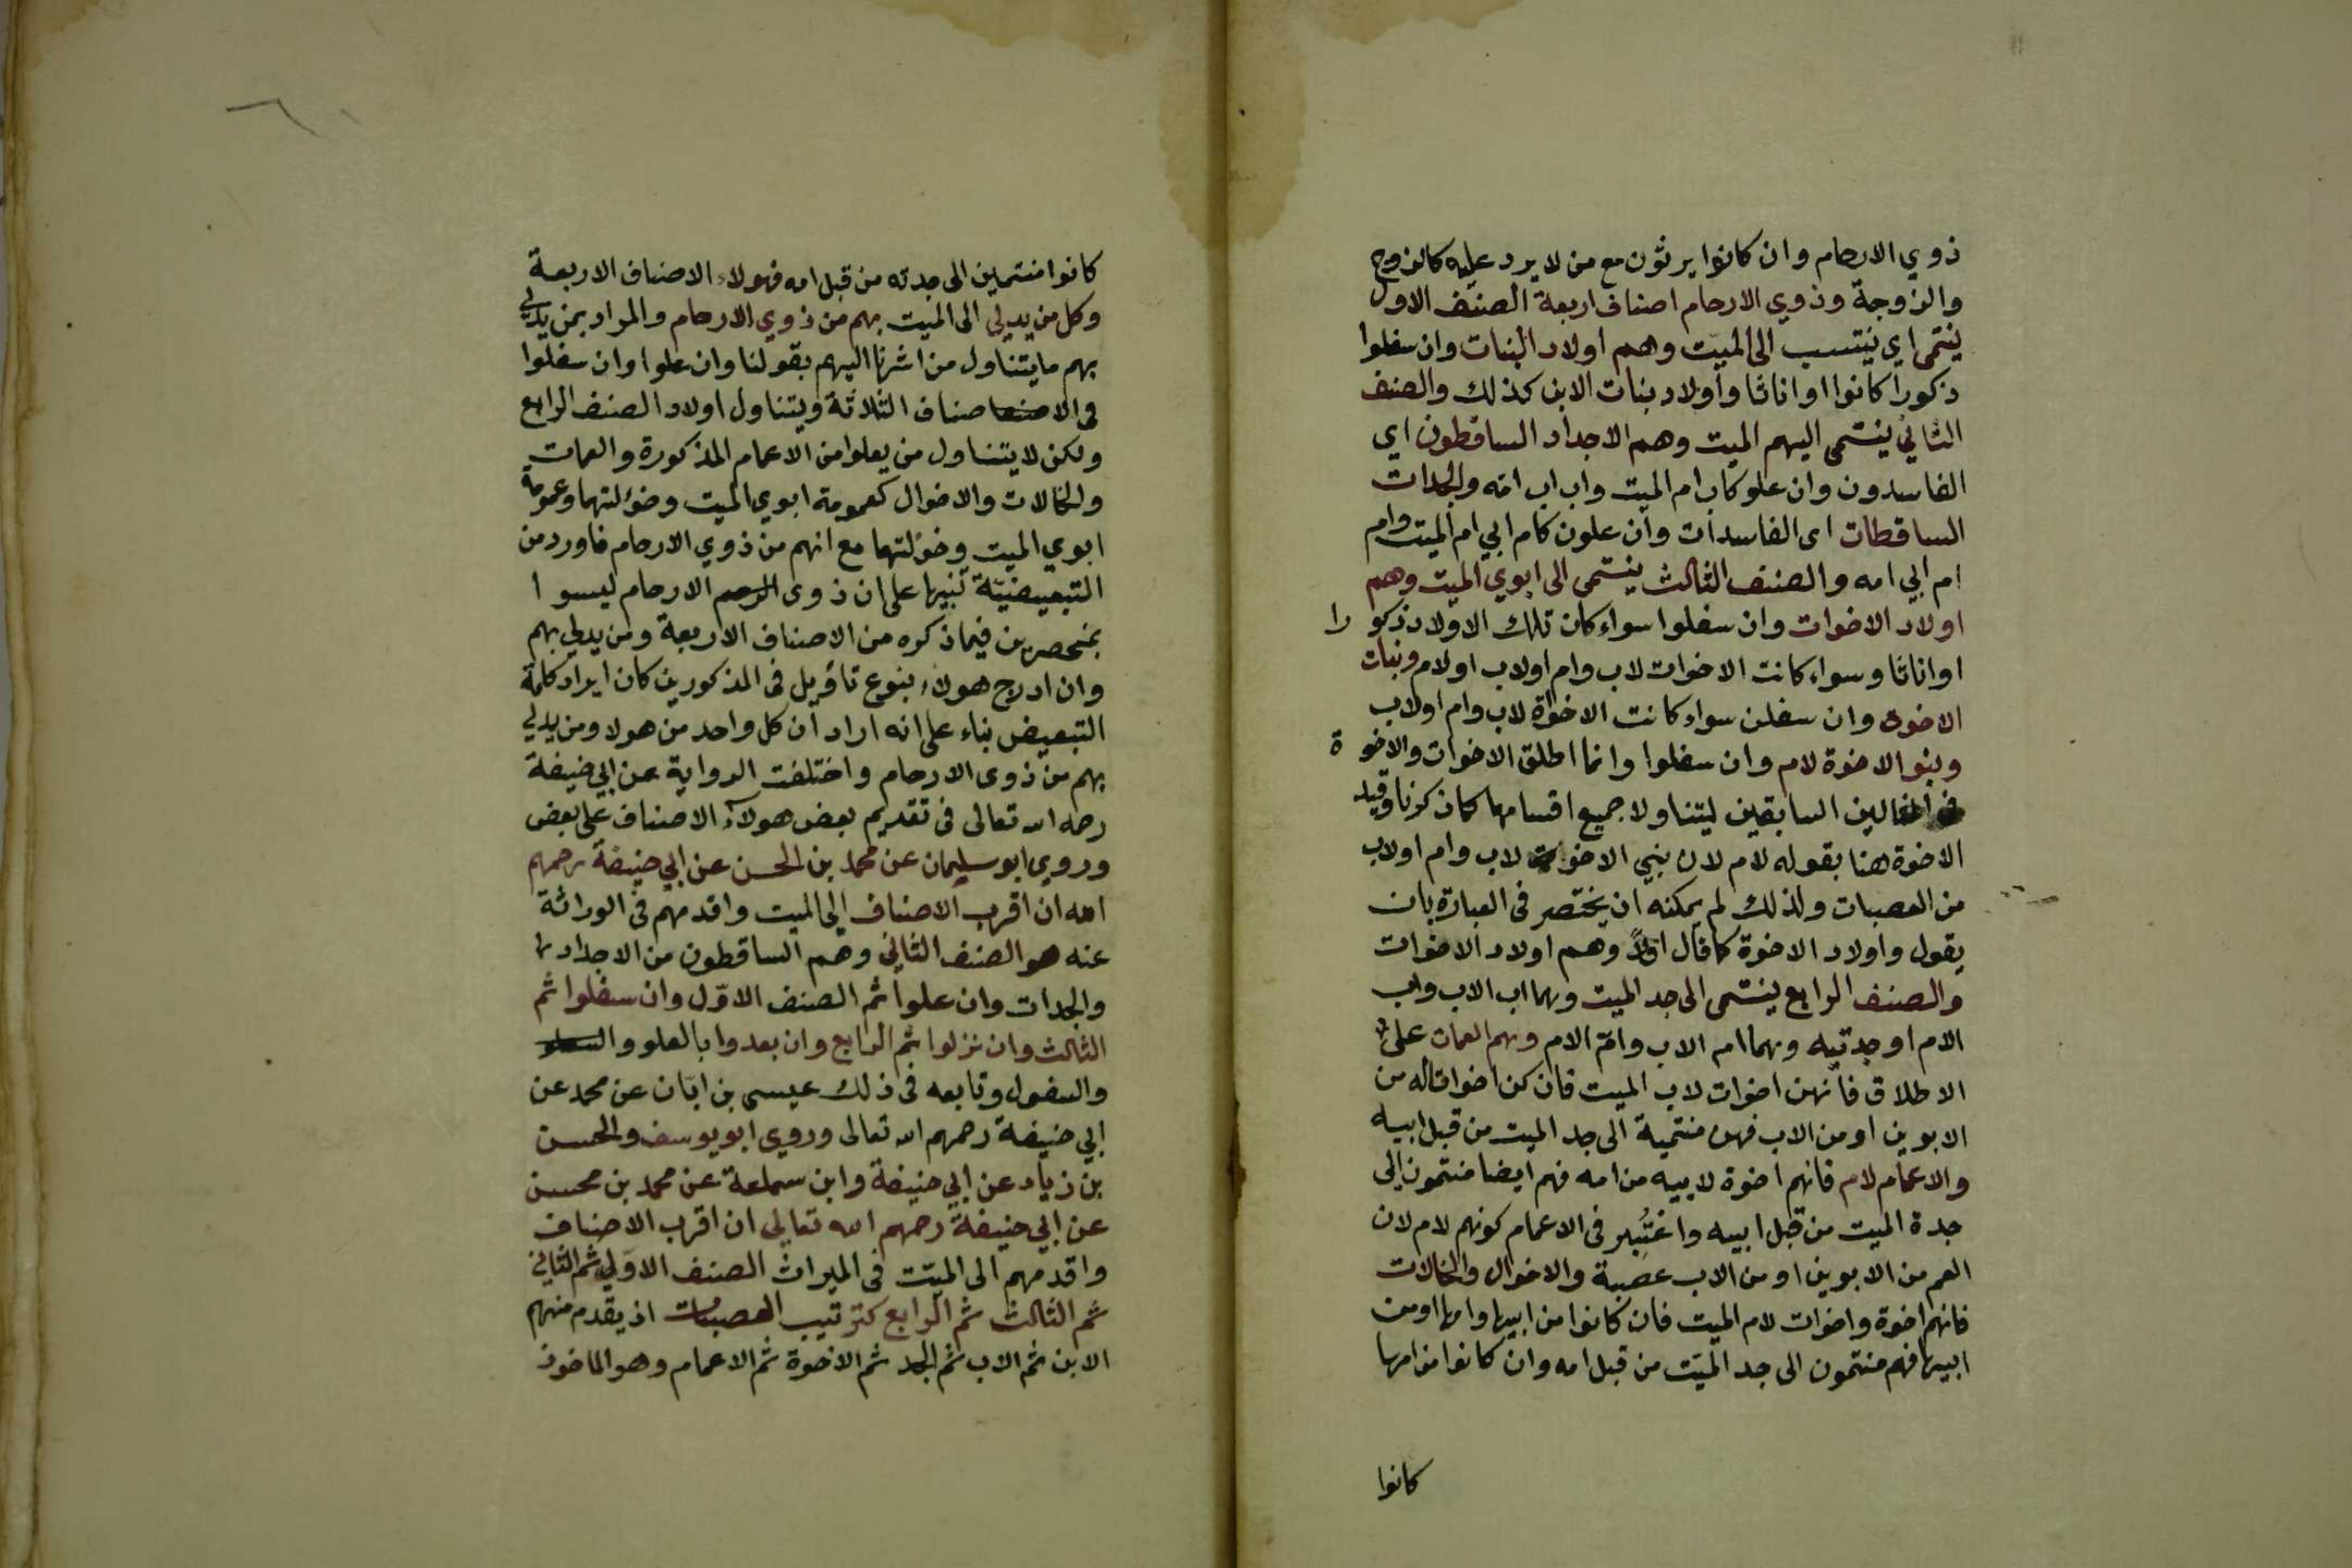 ذوي الارحام وان كانوا يرثون مع من لا يرد عليه كالزوج
والزوجة وذوي الارحام اصناف اربعة الصنف الاول
ينتمى اي ينتسب الى الميت وهم اولاد البنات وان سفلوا
ذكورا كانوا او اناثا واولاد بنات الابن كذلك والصنف
الثاني ينتمى اليهم الميت وهم الاجداد الساقطون اي
الفاسدون وان علو كاب ام الميت واب اب امه والجدات
الساقطات اى الفاسدات وان علون كام ابي ام الميت وام
ام ابي امه والصنف الثالث ينتمى الى ابوي الميت وهم
اولاد الاخوات وان سفلوا سواء كان تلك الاولاد ذكورا
او اناثا وسواء كانت الاخوات لاب وام او لاب او لام وبنات
الاخوة وان سفلن سواء كانت الاخوة لاب وام او لاب
وبنو الاخوة لام وان سفلوا وانما اطلق الاخوات والاخوة
السابقين ليتناولا جميع اقسامها كما ذكرنا وقيد
الاخوة هنا بقوله لام لان بني الاخوة لاب وام او لاب
من العصبات ولذلك لم يمكنه ان يختصر فى العبارة بان
يقول واولاد الاخوة كما قال اولا وهم اولاد الاخوات
والصنف الرابع ينتمى الى جد الميت وهما اب الاب واب
الام او جدتيه وهما ام الاب وام الام وهم العمات على
الاطلاق فانهن اخوات لاب الميت فان كن اخوات له من
الابوين او من الاب فهن منتمية الى جد الميت من قبل ابيه
والاعمام لام فانهم اخوة لابيه من امه فهم ايضا منتمون الى
جدة الميت من قبل ابيه واعتُبِر فى الاعمام كونهم لام لان
العم من الابوين او من الاب عصبة والاخوال والخالات
فانهم اخوة واخوات لام الميت فان كانوا من ابيها وامها او من
ابيها فهم منتمون الى جد الميت من قبل امه وان كانوا من امها
كانوا
كانوا منتمين الى جدته من قبل امه فهولاء الاصناف الاربعة
وكل من يدلي الى الميت بهم من ذوي الارحام والمراد بمن يدلي
بهم ما يتناول من اشرنا اليهم بقولنا وان علوا وان سفلوا
فى الاصناف الثلاثة ويتناول اولاد الصنف الرابع
ولكن لا يتناول من يعلوا من الاعمام المذكورة والعمات
والخالات والاخوال كعمومة ابوي الميت وخؤلتهما وعمومة
ابوي الميت وخؤلتهما مع انهم من ذوي الارحام فاورد من
التبعيضيّة تنبيها على ان ذوى الرحم الارحام ليسوا
بمنحصرين فيما ذكره من الاصناف الاربعة ومن يدلي بهم
وان ادرج هولاء بنوع تأويل فى المذكورين كان ايراد كلمة
التبعيض بناء على انه اراد ان كل واحد من هولا ومن يدلي
بهم من ذوى الارحام واختلفت الرواية عن ابي حنيفة
رحمه الله تعالى فى تقديم بعض هولاء الاصناف على بعض
وروى ابو سليمان عن محمد بن الحسن عن ابي حنيفة رحمهم
الله ان اقرب الاصناف الى الميت واقدمهم فى الوراثة
عنه هو الصنف الثاني وهم الساقطون من الاجداد
والجدات وان علوا ثم الصنف الاوّل وان سفلوا ثم
الثالث وان نزلوا ثم الرابع وان بعدوا بالعلو
والسفول وتابعه فى ذلك عيسى بن ابان عن محمد عن
ابي حنيفة رحمهم الله تعالى وروى ابو يوسف والحسن
بن زياد عن ابي حنيفة وابن سماعة عن محمد بن محسن
عن ابي حنيفة رحمهم الله تعالى ان اقرب الاصناف
واقدمهم الى الميّت فى الميراث الصنف الاوّلي ثم الثاني
ثم الثالث ثم الرابع كترتيب العصبات اذ يقدم منهم
الابن ثم الاب ثم الجد ثم الاخوة ثم الاعمام وهو الماخوذ